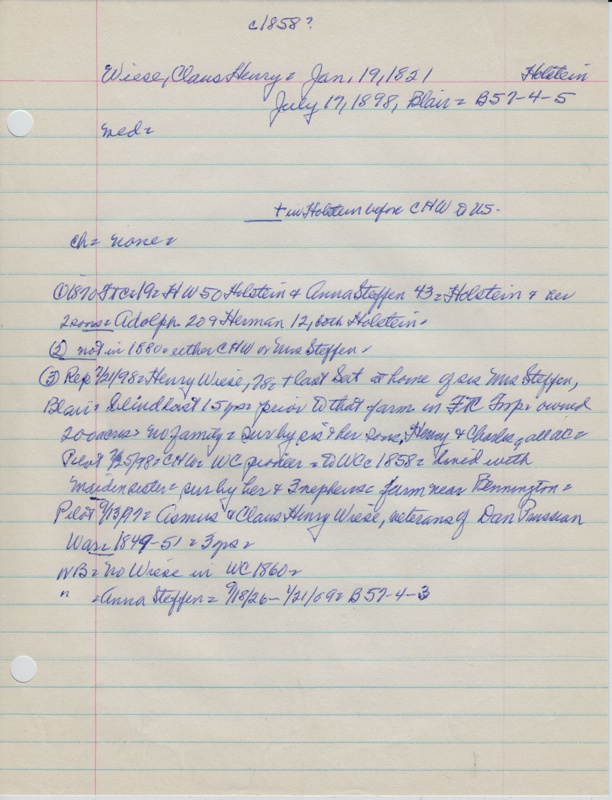 c1858?
Wiese, Claus Henry = Jan. 19, 1821 Holstein
July 17, 1898, Blair = B57-4-5
med =
+ in Holstein before CHW to US.
ch = none =
① 1870 FtC = 19 = HW 50 Holstein & Anna Steffen 43 = Holstein & her
2 sons = Adolph 20 & Herman 12, both Holstein.
② not in 1880 = either CHW or Mrs Steffen =
③ Rep 7/21/98 = Henry Wiese, 78 = + last Sat at home of sis Mrs Steffen,
Blair = blind last 15 yrs prior to that farm in FtC Twp = owned
200 acres = no family = sur by sis & her sons, Henry & Charles, all WC =
Pilot 7/25/98 = CHW = WC pioneer = to WC c 1858 = lived with
maiden sister = sur by her & 3 nephews = farm near Bennington =
Pilot 9/13/97 = Asmus & Claus Henry Wiese, veterans of Dan Prussian
War = 1849-51 = 3 yrs =
NB = no Wiese in WC 1860 =
" = Anna Steffen = 9/18/26 - 1/21/09 = B57-4-3